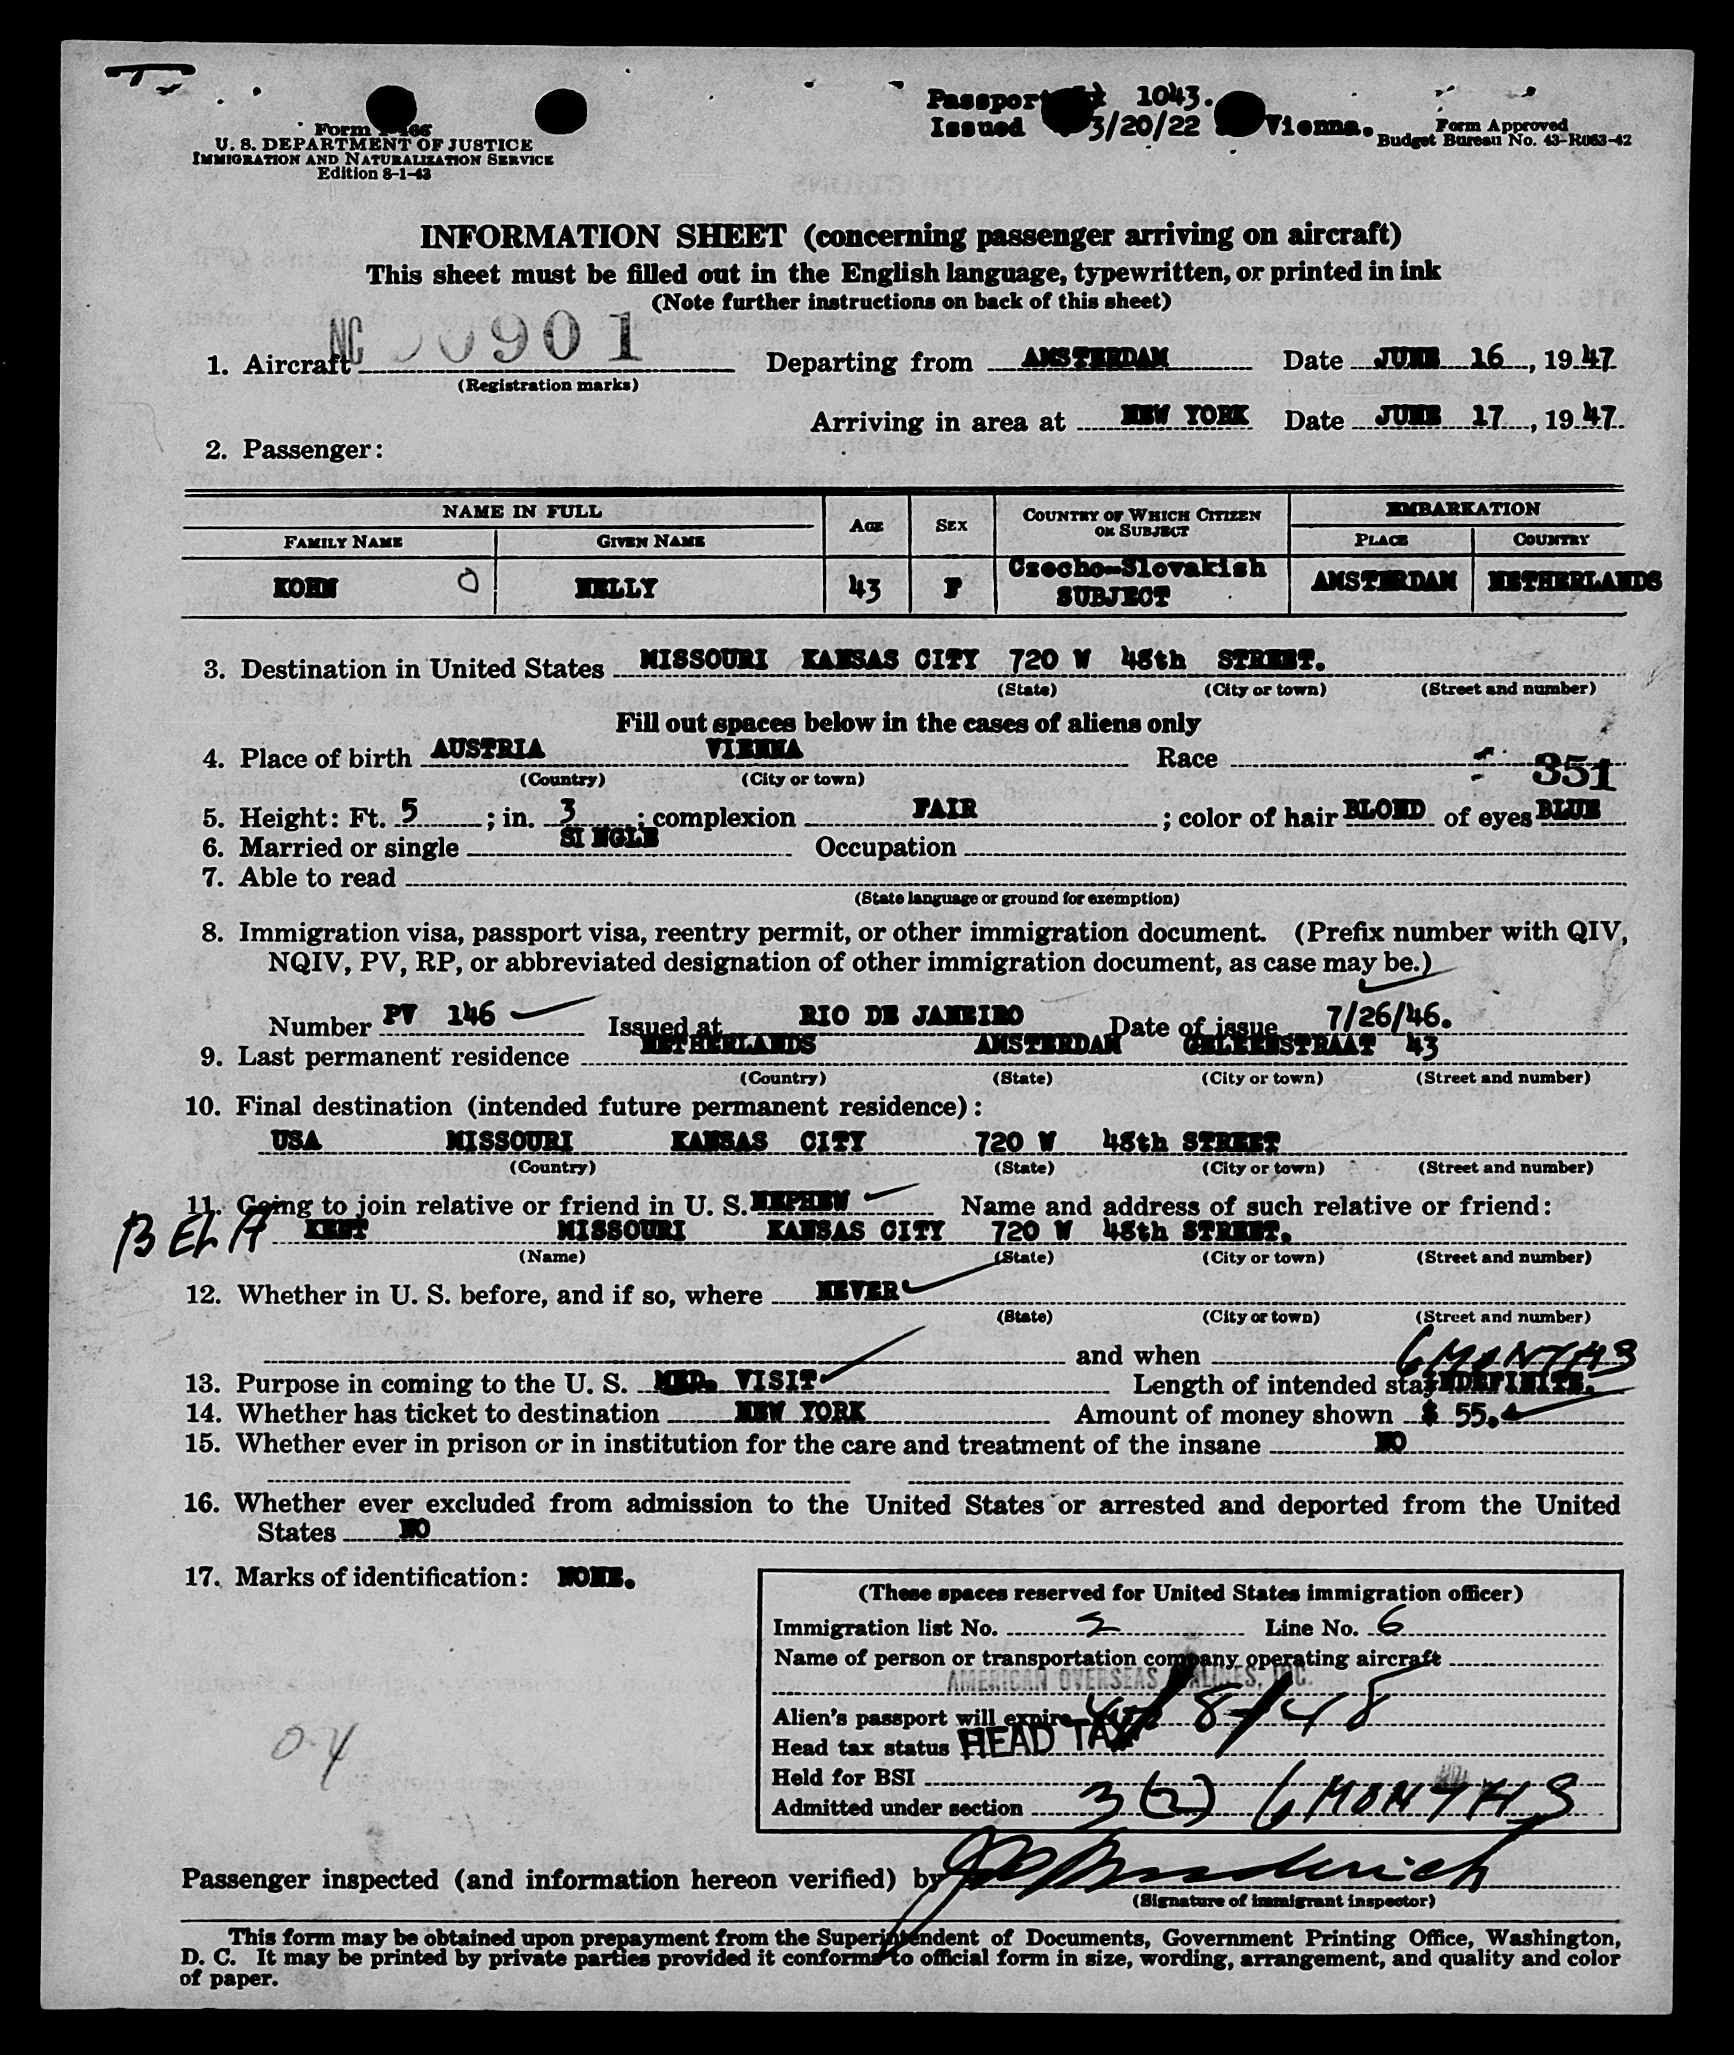 Passport 1043.
Issued 3/20/22 Vienna.
Form I-466
U. S. DEPARTMENT OF JUSTICE
IMMIGRATION AND NATURALIZATION SERVICE
Edition 8-1-43
Form Approved
Budget Bureau No. 43-R063-42
INFORMATION SHEET (concerning passenger arriving on aircraft)
This sheet must be filled out in the English language, typewritten, or printed in ink
(Note further instructions on back of this sheet)
1. Aircraft NC 90901 Departing from AMSTERDAM Date JUNE 16, 1947
(Registration marks)
Arriving in area at NEW YORK Date JUNE 17, 1947.
2. Passenger:
NAME IN FULL AGE SEX COUNTRY OF WHICH CITIZEN OR SUBJECT EMBARKATION
FAMILY NAME GIVEN NAME PLACE COUNTRY
KOHN NELLY 43 F Czecho-Slovakish SUBJECT AMSTERDAM NETHERLANDS
3. Destination in United States MISSOURI KANSAS CITY 720 W 48th STREET.
(State) (City or town) (Street and number)
Fill out spaces below in the cases of aliens only
4. Place of birth AUSTRIA VIENNA Race
(Country) (City or town)
351
5. Height: Ft. 5 ; in. 3 ; complexion FAIR ; color of hair BLOND of eyes BLUE
6. Married or single SINGLE Occupation
7. Able to read
(State language or ground for exemption)
8. Immigration visa, passport visa, reentry permit, or other immigration document. (Prefix number with QIV,
NQIV, PV, RP, or abbreviated designation of other immigration document, as case may be.)
Number PV 146 Issued at RIO DE JANEIRO Date of issue 7/26/46.
9. Last permanent residence NETHERLANDS AMSTERDAM GELEENSTRAAT 43
(Country) (State) (City or town) (Street and number)
10. Final destination (intended future permanent residence):
USA MISSOURI KANSAS CITY 720 W 48th STREET
(Country) (State) (City or town) (Street and number)
11. Going to join relative or friend in U. S. NEPHEW Name and address of such relative or friend:
BELA KENT MISSOURI KANSAS CITY 720 W 48th STREET.
(Name) (State) (City or town) (Street and number)
12. Whether in U. S. before, and if so, where NEVER
(State) (City or town) (Street and number)
and when
6 MONTHS
13. Purpose in coming to the U. S. MED. VISIT Length of intended stay INDEFINITE.
14. Whether has ticket to destination NEW YORK Amount of money shown $ 55.
15. Whether ever in prison or in institution for the care and treatment of the insane NO
16. Whether ever excluded from admission to the United States or arrested and deported from the United
States NO
17. Marks of identification: NONE.
(These spaces reserved for United States immigration officer)
Immigration list No. 2 Line No. 6
Name of person or transportation company operating aircraft
AMERICAN OVERSEAS AIRLINES, INC.
Alien's passport will expire 4/8/48
Head tax status HEAD TAX
Held for BSI
Admitted under section 3(2) 6 MONTHS
04
Passenger inspected (and information hereon verified) by
(Signature of immigrant inspector)
This form may be obtained upon prepayment from the Superintendent of Documents, Government Printing Office, Washington,
D. C. It may be printed by private parties provided it conforms to official form in size, wording, arrangement, and quality and color
of paper.